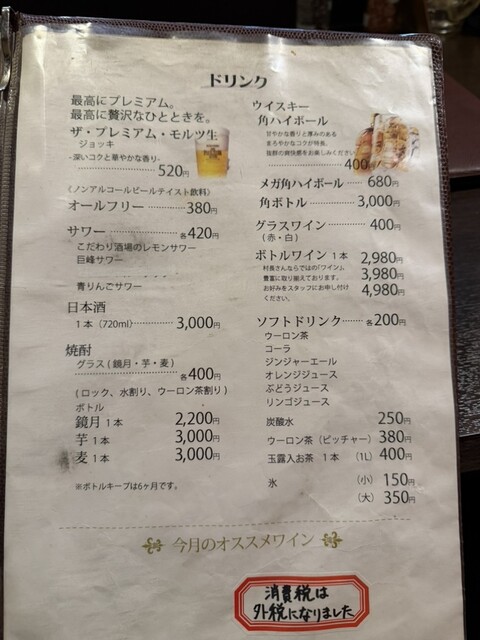 ドリンク
最高にプレミアム。
最高に贅沢なひとときを。
ザ・プレミアム・モルツ生
ジョッキ
-深いコクと華やかな香り-
520円
(ノンアルコールビールテイスト飲料)
オールフリー 380円
サワー 各420円
こだわり酒場のレモンサワー
巨峰サワー
青りんごサワー
日本酒
1本 (720ml) 3,000円
焼酎
グラス (鏡月・芋・麦)
各400円
(ロック、水割り、ウーロン茶割り)
ボトル
鏡月 1本 2,200円
芋 1本 3,000円
麦 1本 3,000円
※ボトルキープは6ヶ月です。
ウイスキー
角ハイボール
甘やかな香りと厚みのある
まろやかなコクが特長。
抜群の爽快感をお楽しみください
400円
メガ角ハイボール 680円
角ボトル 3,000円
グラスワイン 400円
(赤・白)
ボトルワイン 1本 2,980円
村長さんならではの「ワイン」 3,980円
豊富に取り揃えております。
お好みをスタッフにお申し付け 4,980円
ください。
ソフトドリンク 各200円
ウーロン茶
コーラ
ジンジャーエール
オレンジジュース
ぶどうジュース
リンゴジュース
炭酸水 250円
ウーロン茶 (ピッチャー) 380円
玉露入お茶 1本 (1L) 400円
氷 (小) 150円
(大) 350円
今月のオススメワイン
消費税は
外税になりました